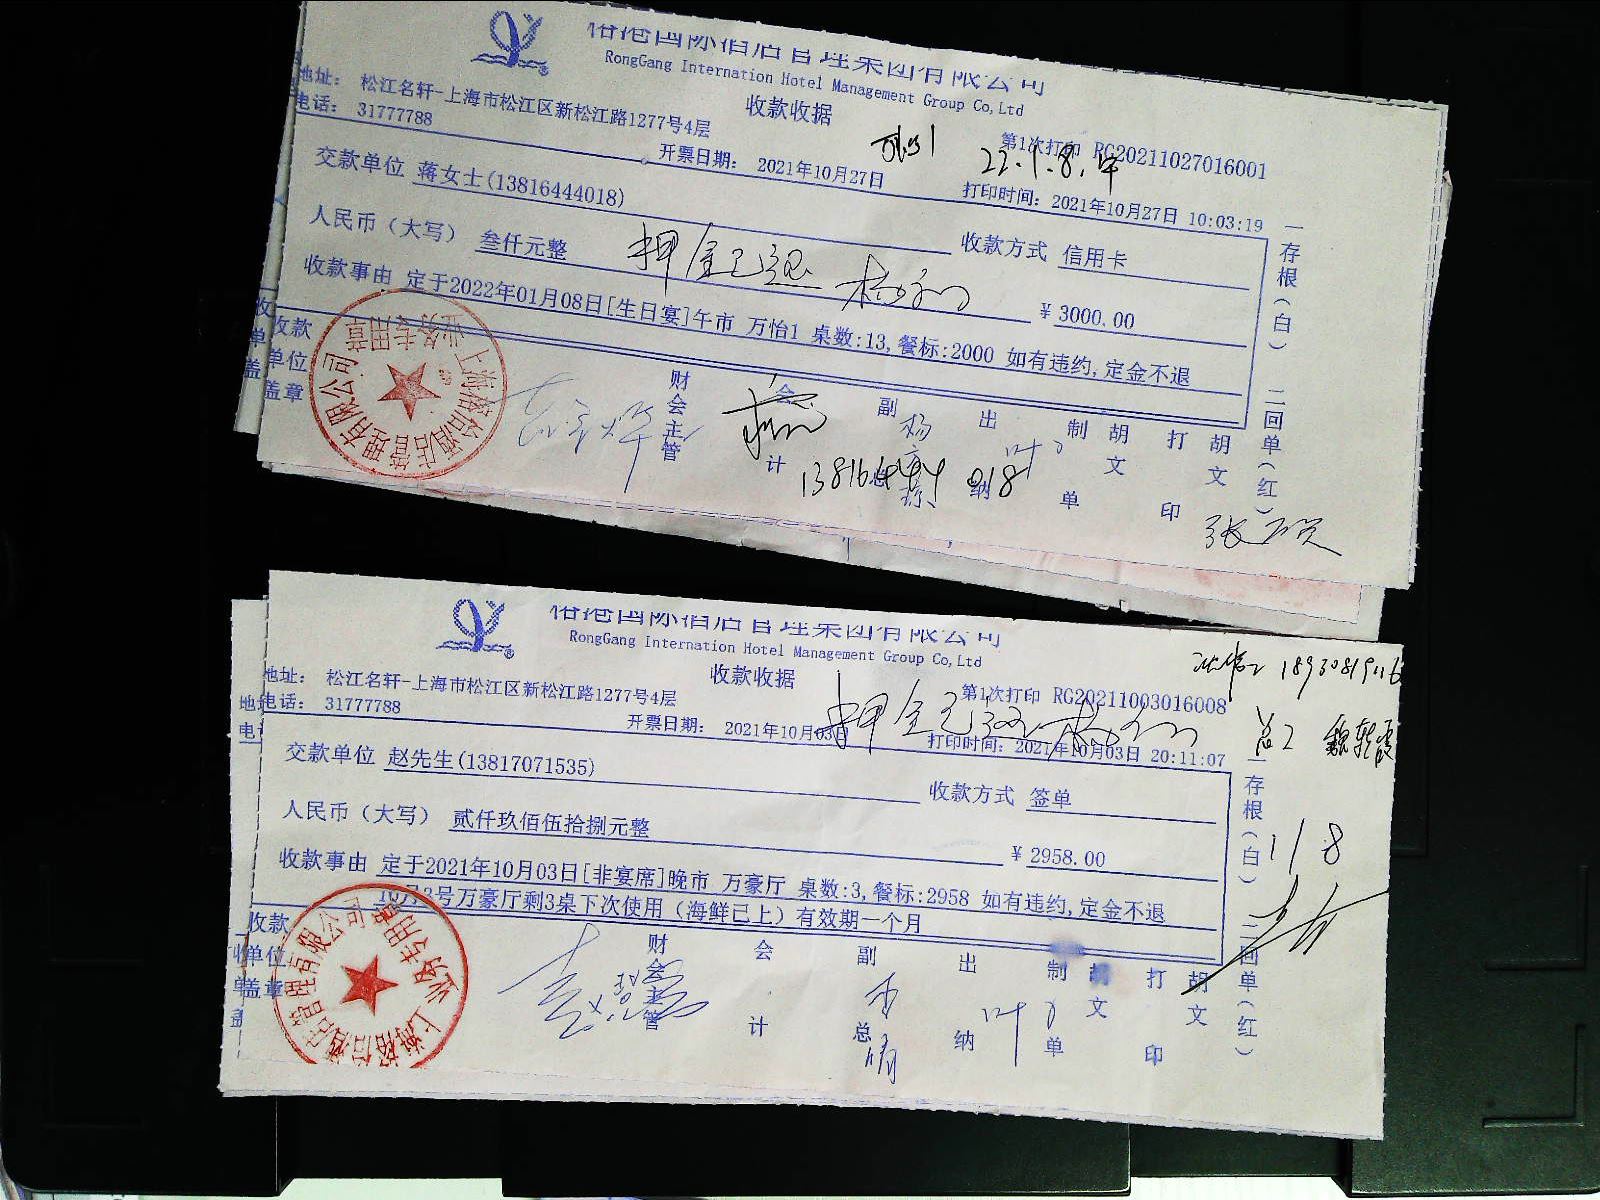 裕港国际酒店管理集团有限公司
RongGang Internation Hotel Management Group Co,Ltd
收款收据
地址: 松江名轩-上海市松江区新松江路1277号4层
电话: 31777788
第1次打印 RG20211027016001
22.1.8.午
开票日期: 2021年10月27日
打印时间: 2021年10月27日 10:03:19
交款单位 蒋女士(13816444018)
收款方式 信用卡
人民币（大写） 叁仟元整
¥ 3000.00
押金已退
收款事由 定于2022年01月08日[生日宴]午市 万怡1 桌数:13,餐标:2000 如有违约,定金不退
收款单位盖章
财会主管
会计
副总
出纳
制单 胡文
打印 胡文
13816444018
一存根(白) 二回单(红)
业务专用章
裕港国际酒店管理集团有限公司
RongGang Internation Hotel Management Group Co,Ltd
收款收据
地址: 松江名轩-上海市松江区新松江路1277号4层
电话: 31777788
第1次打印 RG20211003016008
开票日期: 2021年10月03日
打印时间: 2021年10月03日 20:11:07
押金已退
交款单位 赵先生(13817071535)
收款方式 签单
人民币（大写） 贰仟玖佰伍拾捌元整
¥ 2958.00
收款事由 定于2021年10月03日[非宴席]晚市 万豪厅 桌数:3,餐标:2958 如有违约,定金不退
10月3号万豪厅剩3桌下次使用（海鲜已上）有效期一个月
收款单位盖章
财会主管
会计
副总
出纳
制单 胡文
打印 胡文
一存根(白) 二回单(红)
1/8
业务专用章